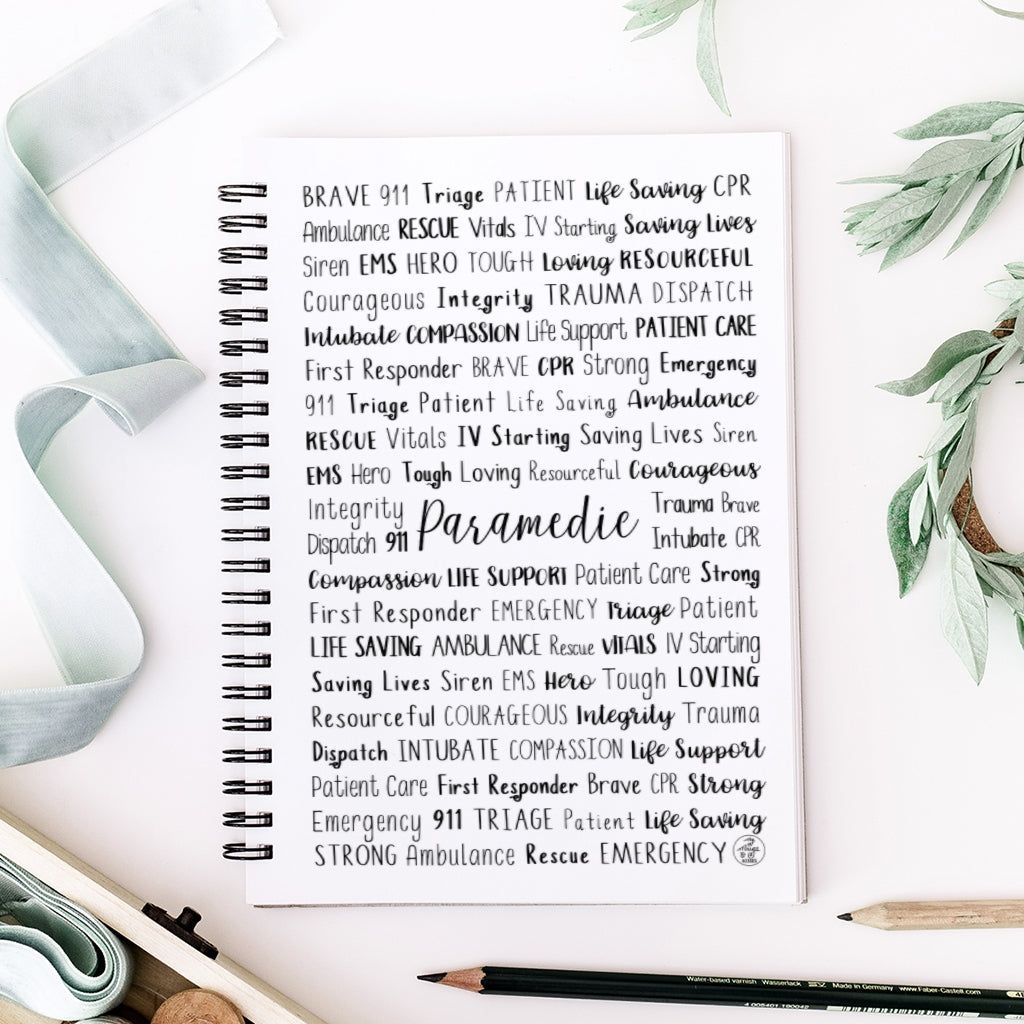 BRAVE 911 Triage PATIENT Life Saving CPR
Ambulance RESCUE Vitals IV Starting Saving Lives
Siren EMS HERO TOUGH Loving RESOURCEFUL
Courageous Integrity TRAUMA DISPATCH
Intubate COMPASSION Life Support PATIENT CARE
First Responder BRAVE CPR Strong Emergency
911 Triage Patient Life Saving Ambulance
RESCUE Vitals IV Starting Saving Lives Siren
EMS Hero Tough Loving Resourceful Courageous
Integrity
Dispatch 911
Paramedic
Trauma Brave
Intubate CPR
Compassion LIFE SUPPORT Patient Care Strong
First Responder EMERGENCY Triage Patient
LIFE SAVING AMBULANCE Rescue VITALS IV Starting
Saving Lives Siren EMS Hero Tough LOVING
Resourceful COURAGEOUS Integrity Trauma
Dispatch INTUBATE COMPASSION Life Support
Patient Care First Responder Brave CPR Strong
Emergency 911 TRIAGE Patient Life Saving
STRONG Ambulance Rescue EMERGENCY
Water-based varnish Wasserlack SV Made in Germany www.Faber-Castell.com
4 005401 190042